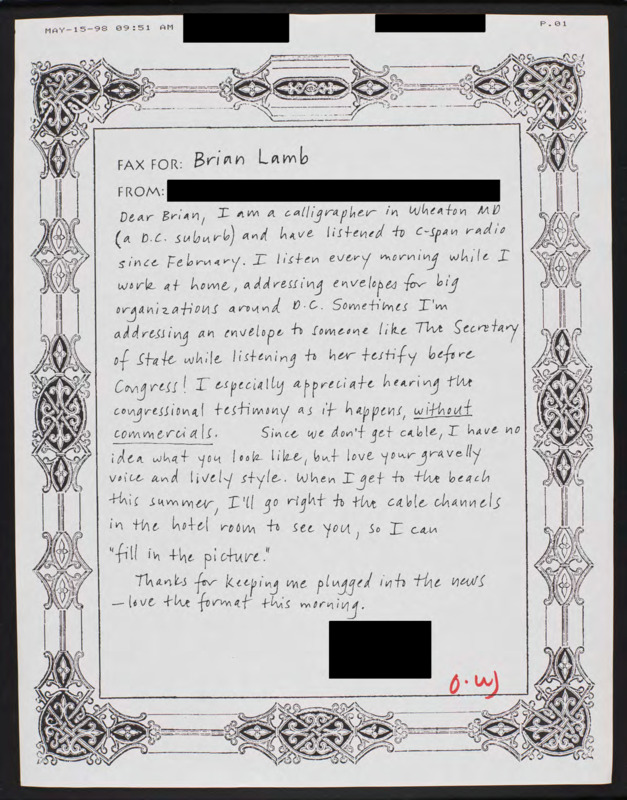 MAY-15-98 09:51 AM
P.01
FAX FOR: Brian Lamb
FROM:
Dear Brian, I am a calligrapher in Wheaton MD
(a D.C. suburb) and have listened to C-span radio
since February. I listen every morning while I
work at home, addressing envelopes for big
organizations around D.C. Sometimes I'm
addressing an envelope to someone like The Secretary
of State while listening to her testify before
Congress! I especially appreciate hearing the
congressional testimony as it happens, without
commercials. Since we don't get cable, I have no
idea what you look like, but love your gravelly
voice and lively style. When I get to the beach
this summer, I'll go right to the cable channels
in the hotel room to see you, so I can
"fill in the picture."
Thanks for keeping me plugged into the news
—love the format this morning.